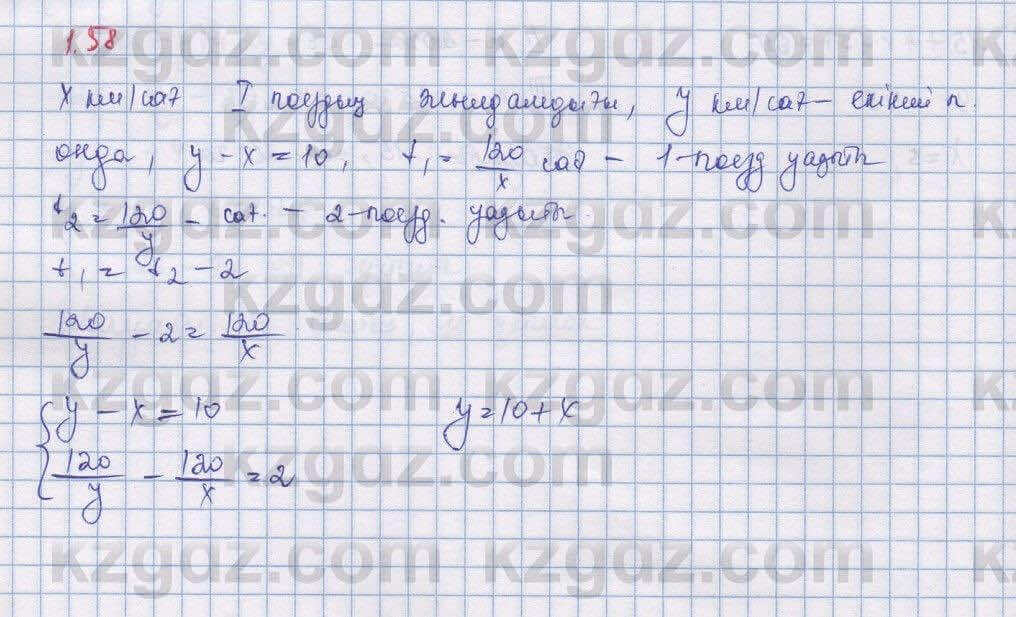 1.58
x км/сағ I поездың жылдамдығы, y км/сағ – екінші п.
онда, y - x = 10, t₁ = 120/x сағ – 1-поезд уақыты
t₂ = 120/y – сағ. – 2-поезд. уақыты
t₁ = t₂ - 2
120/y - 2 = 120/x
{ y - x = 10 y = 10 + x
120/y - 120/x = 2
kzgdz.com